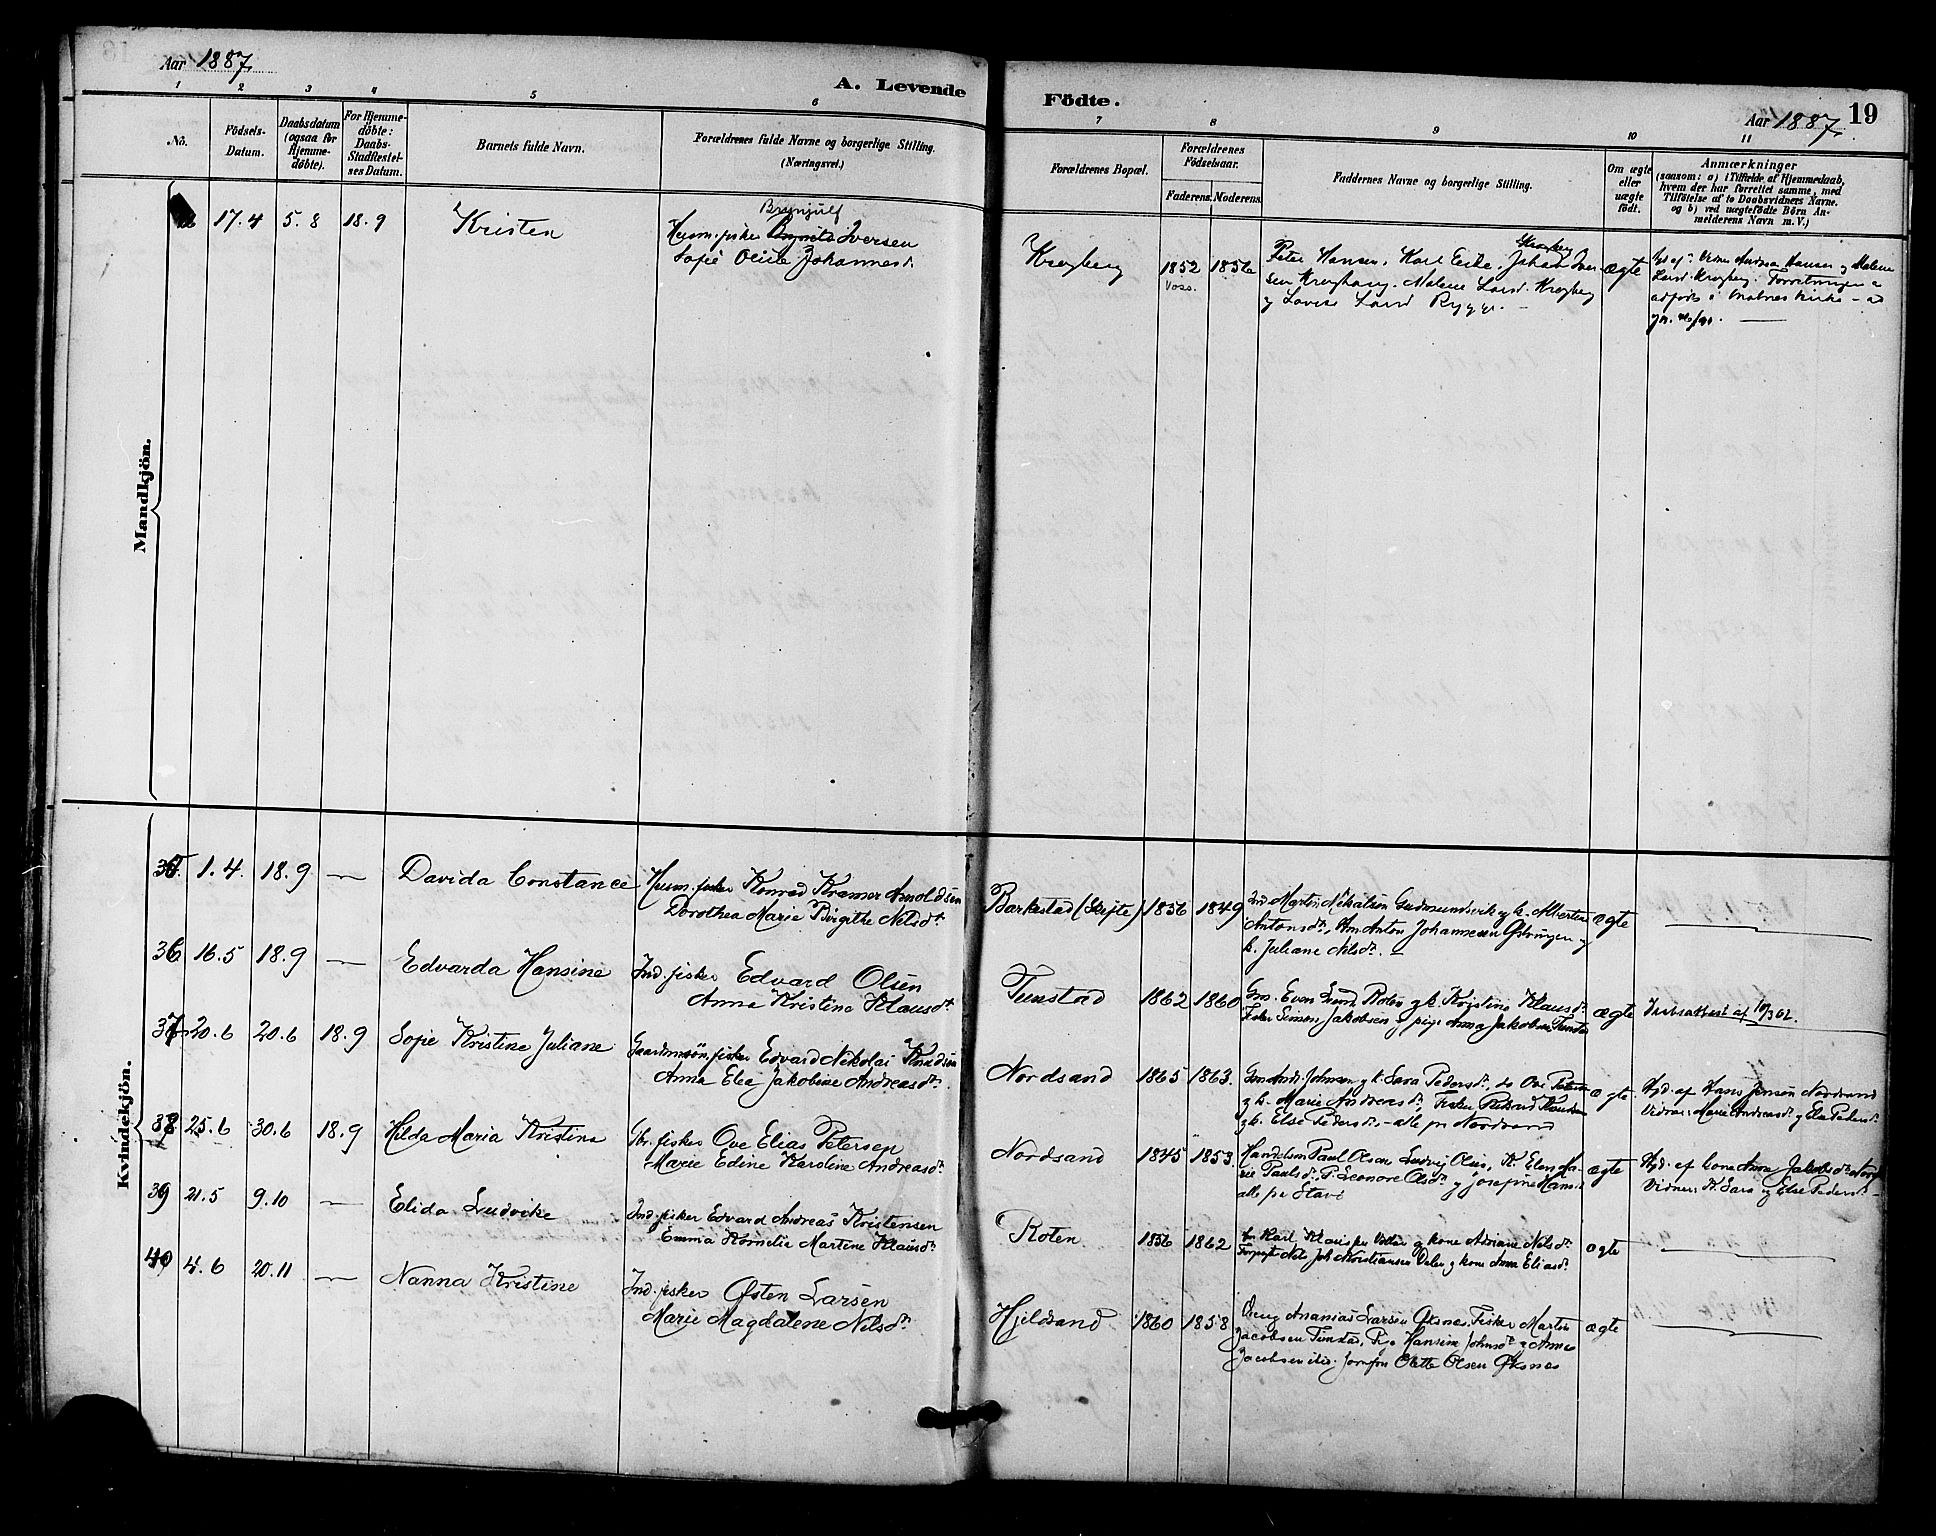 Aar 1887.
A. Levende
Födte.
Aar 1887.
19
1 2 3 4 5 6
7 8 9 10 11
No.
Födsels-
Datum.
Daabsdatum
(ogsaa for
Hjemme-
döbte).
For Hjemme-
döbte:
Daabs-
Stadfæstel-
ses Datum.
Barnets fulde Navn.
Forældrenes fulde Navne og borgerlige Stilling.
(Næringsvei.)
Forældrenes Bopæl.
Forældrenes
Födselsaar.
Faderens. Moderens.
Faddernes Navne og borgerlige Stilling.
Om ægte
eller
uægte
födt.
Anmærkninger
(saasom: a) i Tilfælde af Hjemmedaab,
hvem der har forrettet samme, med
Tilföielse af to Daabsvidners Navne.
og b) ved uægtefödte Börn An-
melderens Navn m.V.)
Mandkjön.
17.4 5.8 18.9 Kristen
Brynjulf
Husm. fisker Iversen
Sofie Johannesd.
Krogberg 1852 1856
Voss.
Krogberg
Peter Hansen, Karl Johan Iver-
sen Malene Larsd. Krogberg
og Lovise Larsd Rygge. —
ægte
Hansen og Malene
Larsd. Krogberg. Forretningen
i kirke
Kvindekjön.
35 1.4. 18.9 — Davida Constance
Husm. fisker Konrad Kramer Arnoldsen
Dorothea Marie Birgithe Nilsdr.
Barkestad (Skifte) 1856 1849
Martin Nikolaisen Gudmundsvik og k. Albertine
Antonsdr., Anton Johannesen og
k. Juliane Nilsdr. —
ægte
36 16.5 18.9 — Edvarda Hansine
Ind. fisker Edvard Olsen
Anna Kristine Klausdr.
Tunstad 1862 1860
Even Roten og k. Kristine Klausdr.
Fisker Simon Jakobsen og pige Anna Jakobsen Tunstad
ægte
af 10/3 02.
37 20.6 20.6 18.9 Sofie Kristine Juliane
Gaardmsøn, fisker Edvard Nikolai Knudsen
Anna Elea Jakobine Andreasdr.
Nordsand 1865 1863.
Andr. Johnsen og k. Sara Pedersdr. Ove Petersen
og k. Marie Andreasdr., Fisker Rikard
og k. Else Pedersdr. — alle pr Nordsand
ægte
Hjd. af Hans Jensen Nordsand
Vidner: Marie Andreasdr. og Else Pedersdr.
38 25.6 30.6 18.9 Hilda Maria Kristina
Gbr. fisker Ove Elias Petersen
Marie Edine Karoline Andreasdr.
Nordsand 1845 1853.
Handelsm Paul Olsen, Ludvig Olsen, K. Elen Ma-
rie Paulsdr. P. Leonore Olsdr. og Josefine Hans.
alle pr Stave
ægte
Hjd. af kone Anna Jakobsdr.
Vidner: K. Sara og Else Pedersdr. —
39 21.5 9.10 — Elida Ludvike
Ind. fisker Edvard Andreas Kristensen
Emma Kornelia Martine Klausdr.
Roten 1856 1862
Karl Klaus og kone Adriane Nilsdr.
Nils Joh Kristiansen og kone Anna Eliasdr.
ægte
40 4.6 20.11 — Nanna Kristine
Ind. fisker Østen Larsen
Marie Magdalene Nilsdr.
Hjeldsand 1860 1858
Ananias Larsen Øksnes, Fisker Martin
Jacobsen Tinstad, Pige Hansine Johnsdr. Anne
Jacobsen Olette Olsen Øksnes
ægte